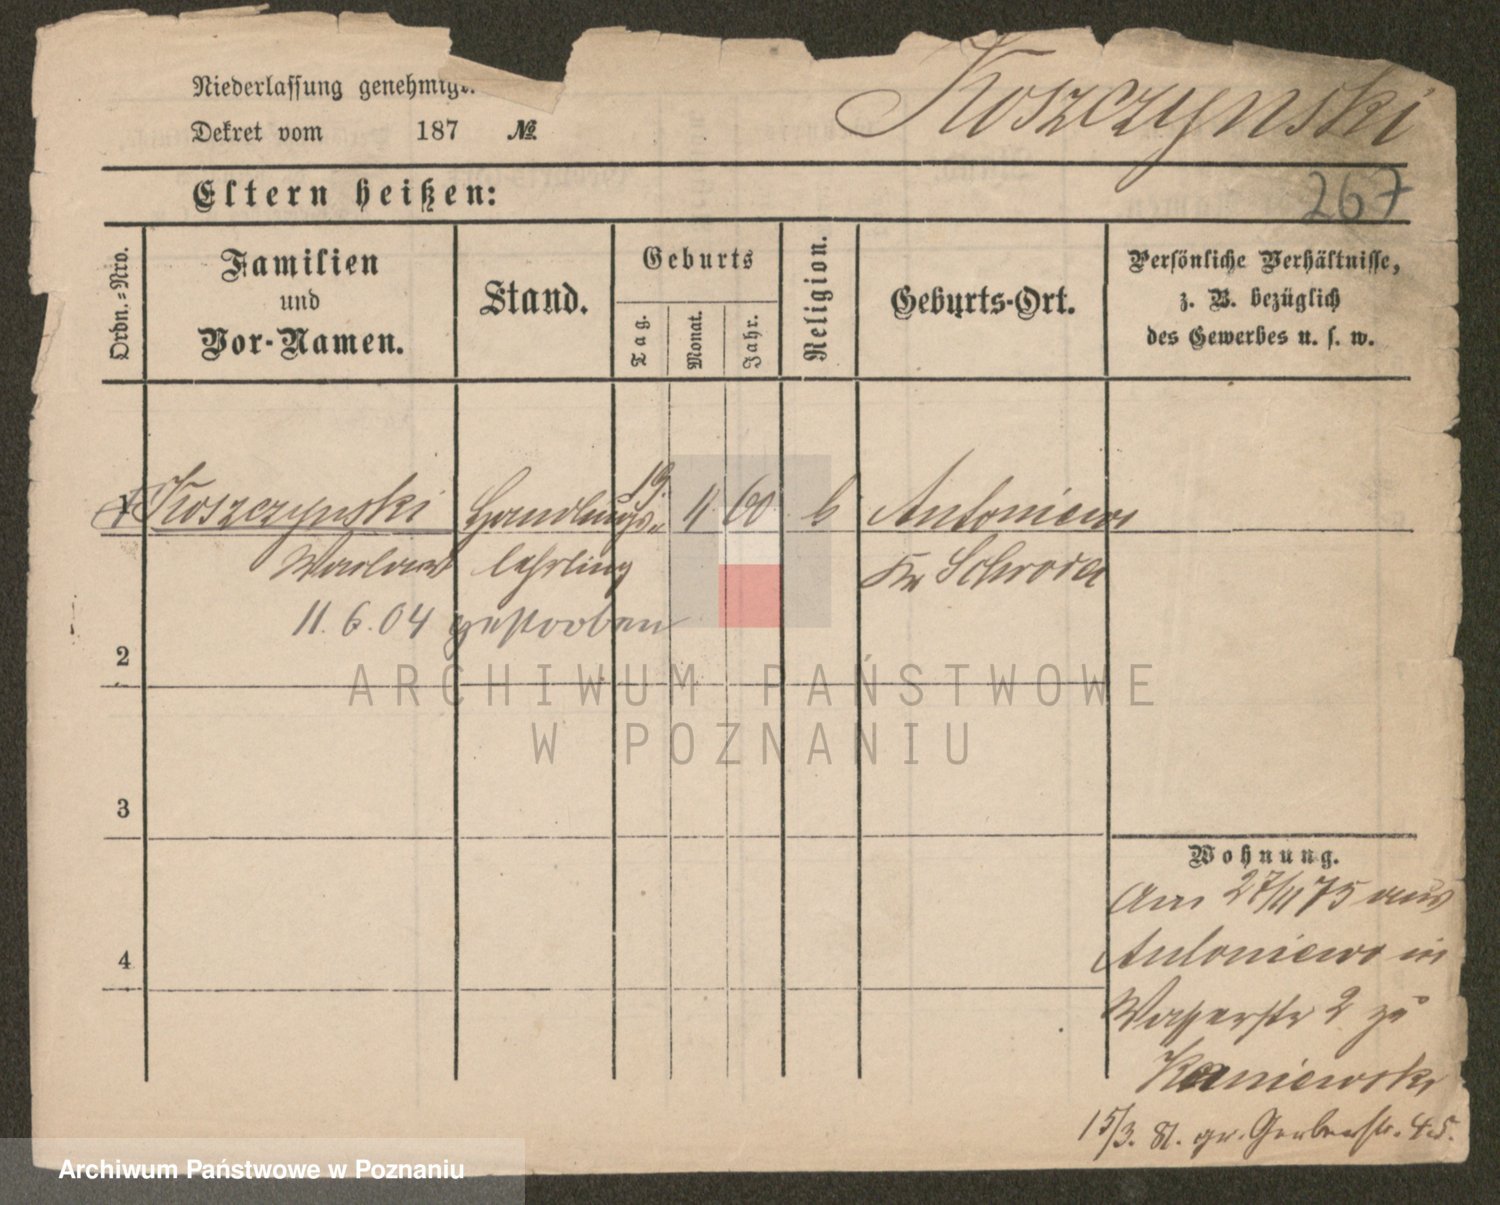 Niederlassung genehmigt.
Dekret vom 187 №
Koszczynski
267
Eltern heißen:
Ordn.=Nro.
Familien
und
Vor-Namen.
Stand.
Geburts
Tag.
Monat.
Jahr.
Religion.
Geburts-Ort.
Persönliche Verhältnisse,
z. B. bezüglich
des Gewerbes u. s. w.
1 Koszczynski Handlungs- 19. 11 60 Antoniewo
Waclaw lehrling Kr Schroda
11.6.04 gestorben
2
3
4
Wohnung.
Am 27/11 75 aus
Antoniewo in
Wasserstr 2 zu
Kaniewski
15/3. 81. gr. Gerberstr. 45.
ARCHIWUM PAŃSTWOWE
W POZNANIU
Archiwum Państwowe w Poznaniu